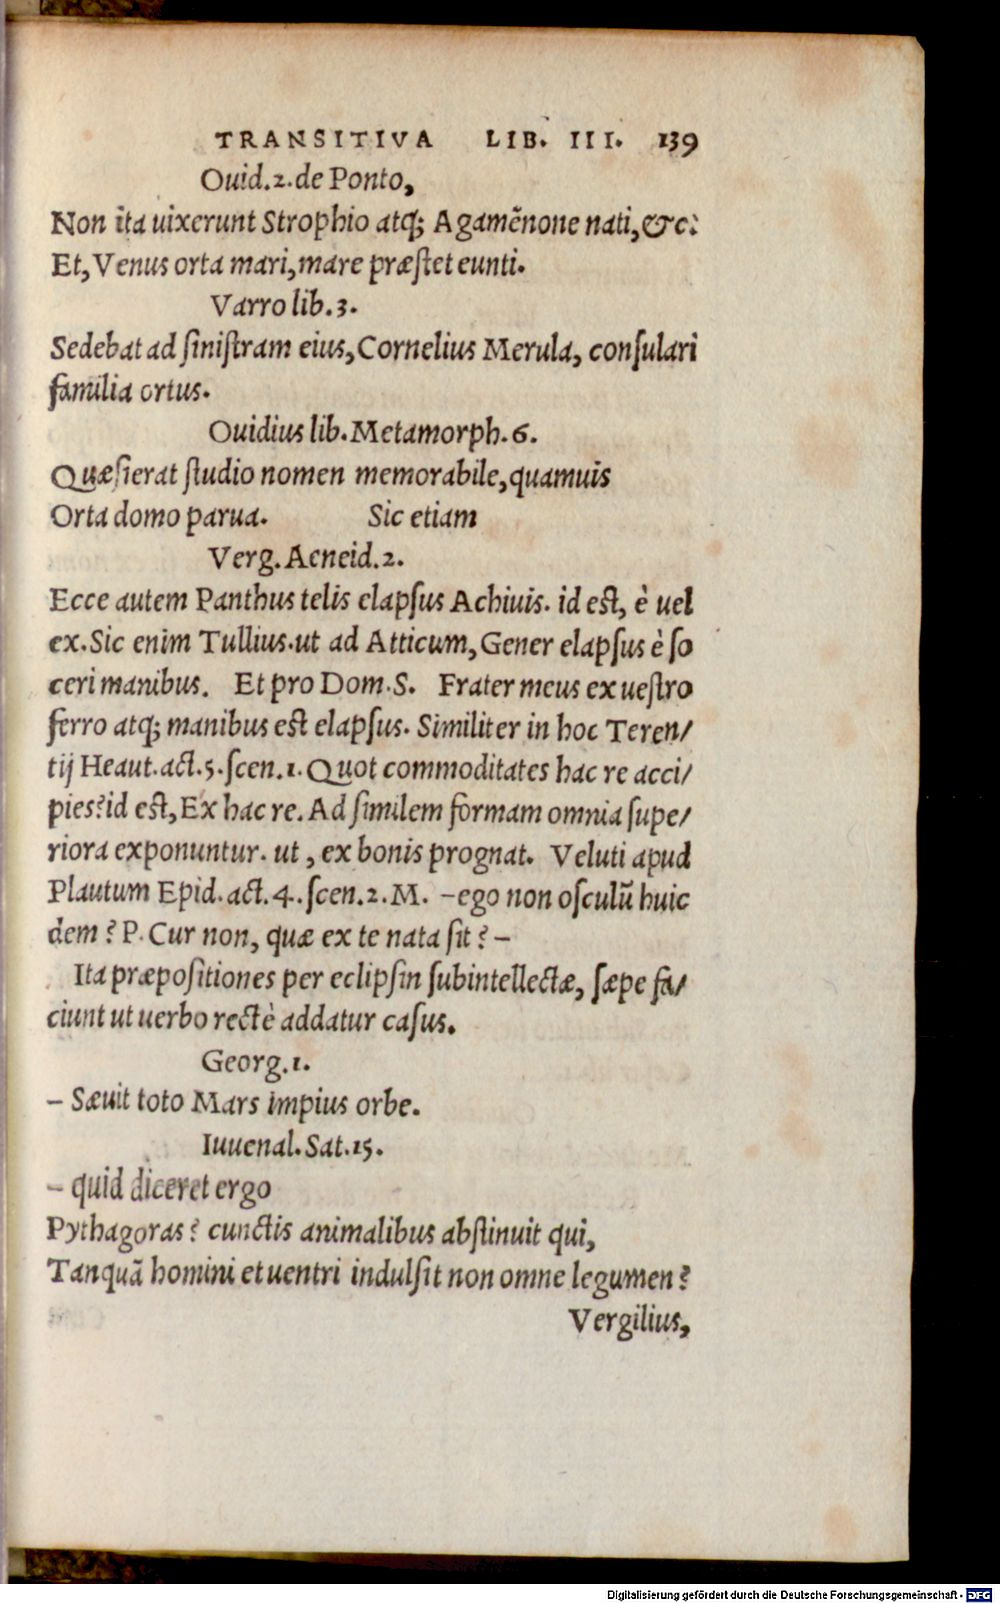 TRANSITIVA LIB. III. 139
Ouid.2.de Ponto,
Non ita uixerunt Strophio atq; Agamẽnone nati,&c:
Et,Venus orta mari,mare præſtet eunti.
Varro lib.3.
Sedebat ad ſiniſtram eius,Cornelius Merula, conſulari
familia ortus.
Ouidius lib.Metamorph.6.
Quæſierat ſtudio nomen memorabile,quamuis
Orta domo parua. Sic etiam
Verg.Aeneid.2.
Ecce autem Panthus telis elapſus Achiuis. id est, è uel
ex.Sic enim Tullius.ut ad Atticum,Gener elapſus è ſo
ceri manibus. Et pro Dom.S. Frater meus ex ueſtro
ferro atq; manibus est elapſus. Similiter in hoc Teren/
tij Heaut.act.5.ſcen.1.Quot commoditates hac re acci/
pies?id est,Ex hac re.Ad ſimilem formam omnia ſupe/
riora exponuntur. ut , ex bonis prognat. Veluti apud
Plautum Epid.act.4.ſcen.2.M. –ego non oſculũ huic
dem ? P. Cur non, quæ ex te nata ſit ? –
Ita præpoſitiones per eclipſin ſubintellectæ, ſæpe fa/
ciunt ut uerbo rectè addatur caſus.
Georg.1.
– Sæuit toto Mars impius orbe.
Iuuenal.Sat.15.
– quid diceret ergo
Pythagoras ? cunctis animalibus abſtinuit qui,
Tanquã homini et uentri indulſit non omne legumen ?
Vergilius,
Digitalisierung gefördert durch die Deutsche Forschungsgemeinschaft - DFG